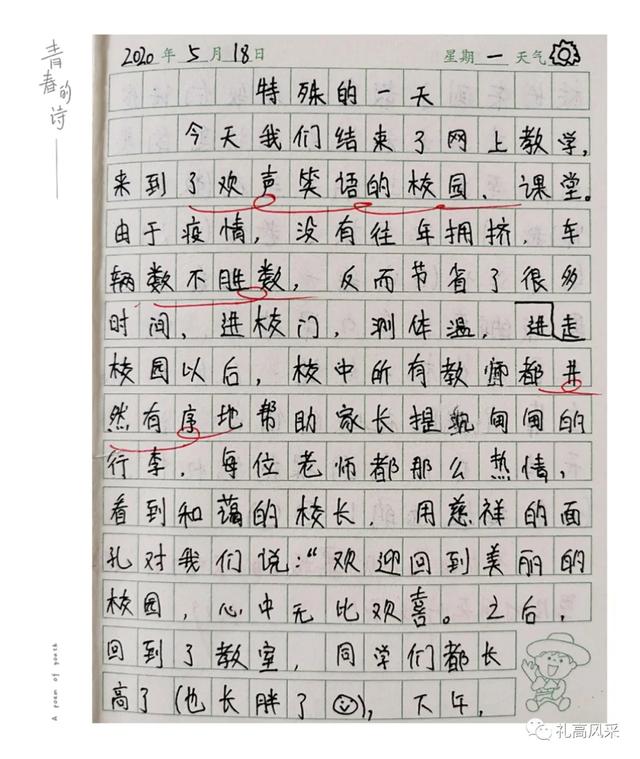 青春的诗
2020年5月18日 星期一 天气
特殊的一天
今天我们结束了网上教学,
来到了欢声笑语的校园、课堂。
由于疫情,没有往年拥挤,车
辆数不胜数,反而节省了很多
时间,进校门,测体温,进走
校园以后,校中所有教师都井
然有序地帮助家长提甸甸的
行李,每位老师都那么热情,
看到和蔼的校长,用慈祥的面
孔对我们说:“欢迎回到美丽的
校园,心中无比欢喜。之后,
回到了教室,同学们都长
高了(也长胖了),下午,
A poem of youth
礼高风采